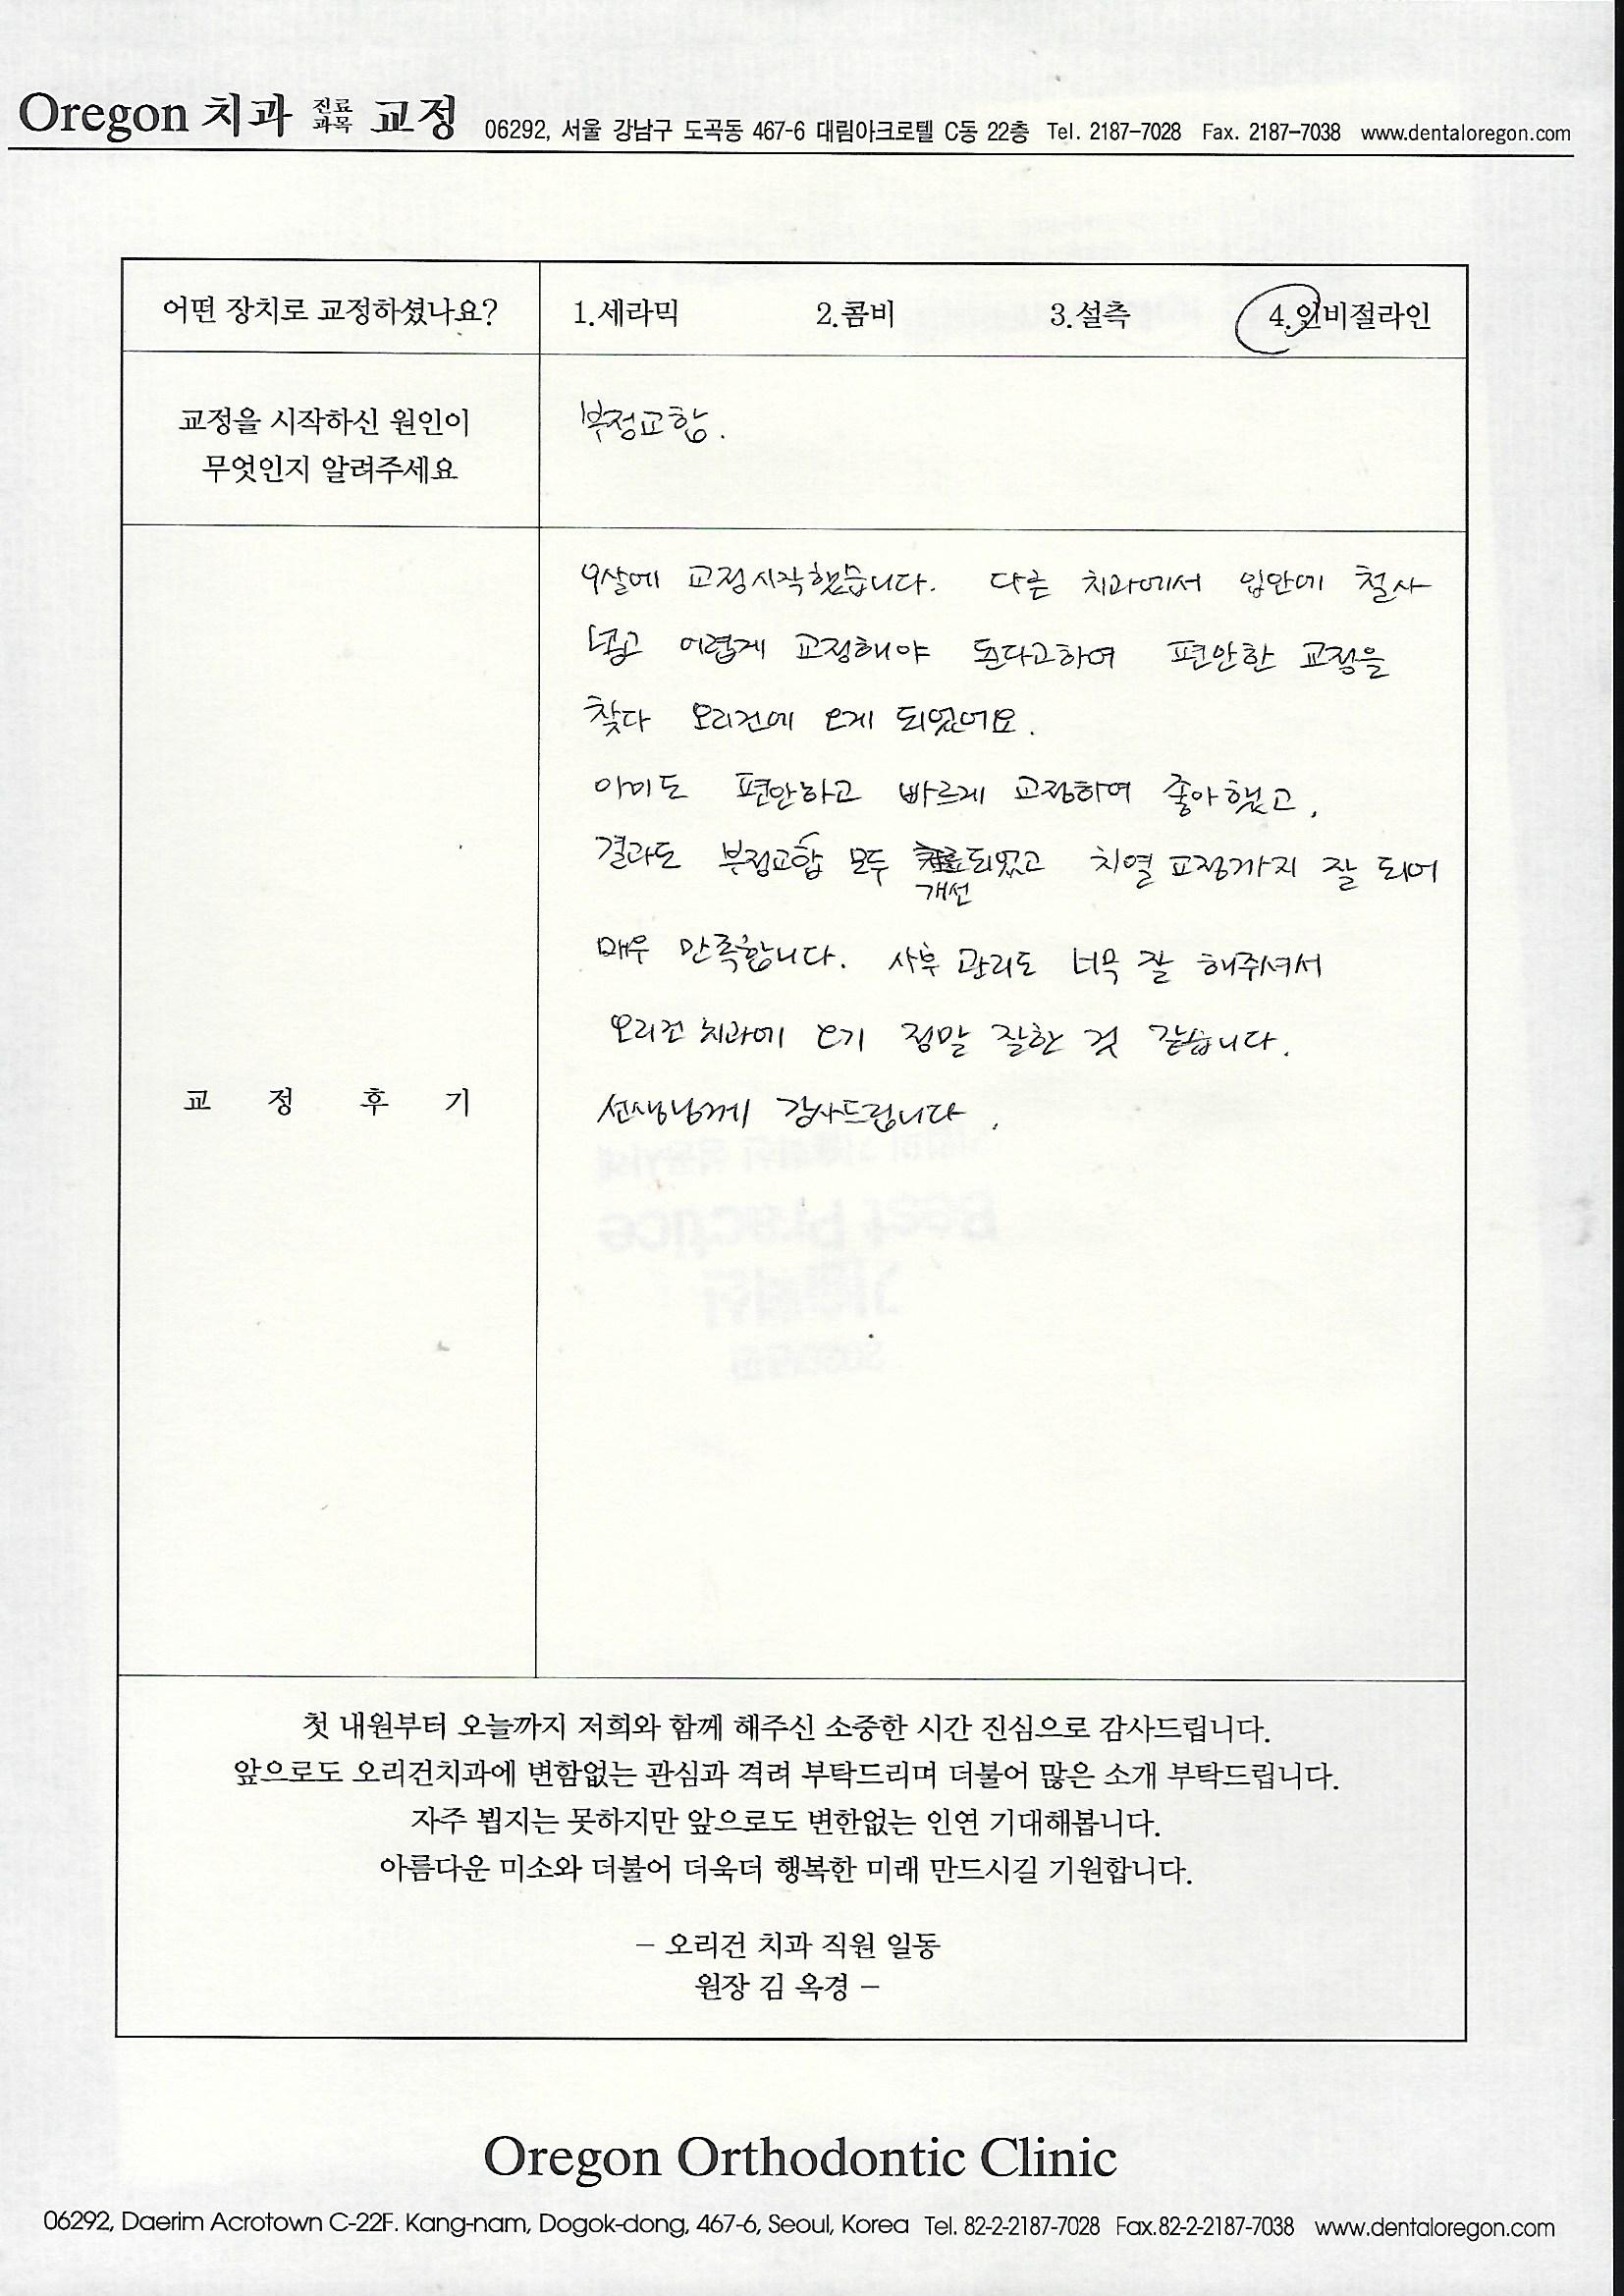 Oregon 치과 진료과목 교정 06292, 서울 강남구 도곡동 467-6 대림아크로텔 C동 22층 Tel. 2187-7028 Fax. 2187-7038 www.dentaloregon.com
어떤 장치로 교정하셨나요? 1.세라믹 2.콤비 3.설측 4.인비절라인
교정을 시작하신 원인이
무엇인지 알려주세요
부정교합.
9살에 교정시작했습니다. 다른 치과에서 입안에 철사
넣고 어렵게 교정해야 된다고하여 편안한 교정을
찾다 오리건에 오게 되었어요.
아이도 편안하고 빠르게 교정하여 좋아했고,
결과도 부정교합 모두 되었고 치열 교정까지 잘 되어
개선
매우 만족합니다. 사후 관리도 너무 잘 해주셔서
오리건 치과에 오기 정말 잘한 것 같습니다.
교 정 후 기
선생님께 감사드립니다.
첫 내원부터 오늘까지 저희와 함께 해주신 소중한 시간 진심으로 감사드립니다.
앞으로도 오리건치과에 변함없는 관심과 격려 부탁드리며 더불어 많은 소개 부탁드립니다.
자주 뵙지는 못하지만 앞으로도 변한없는 인연 기대해봅니다.
아름다운 미소와 더불어 더욱더 행복한 미래 만드시길 기원합니다.
– 오리건 치과 직원 일동
원장 김 옥경 –
Oregon Orthodontic Clinic
06292, Daerim Acrotown C-22F. Kang-nam, Dogok-dong, 467-6, Seoul, Korea Tel. 82-2-2187-7028 Fax.82-2-2187-7038 www.dentaloregon.com